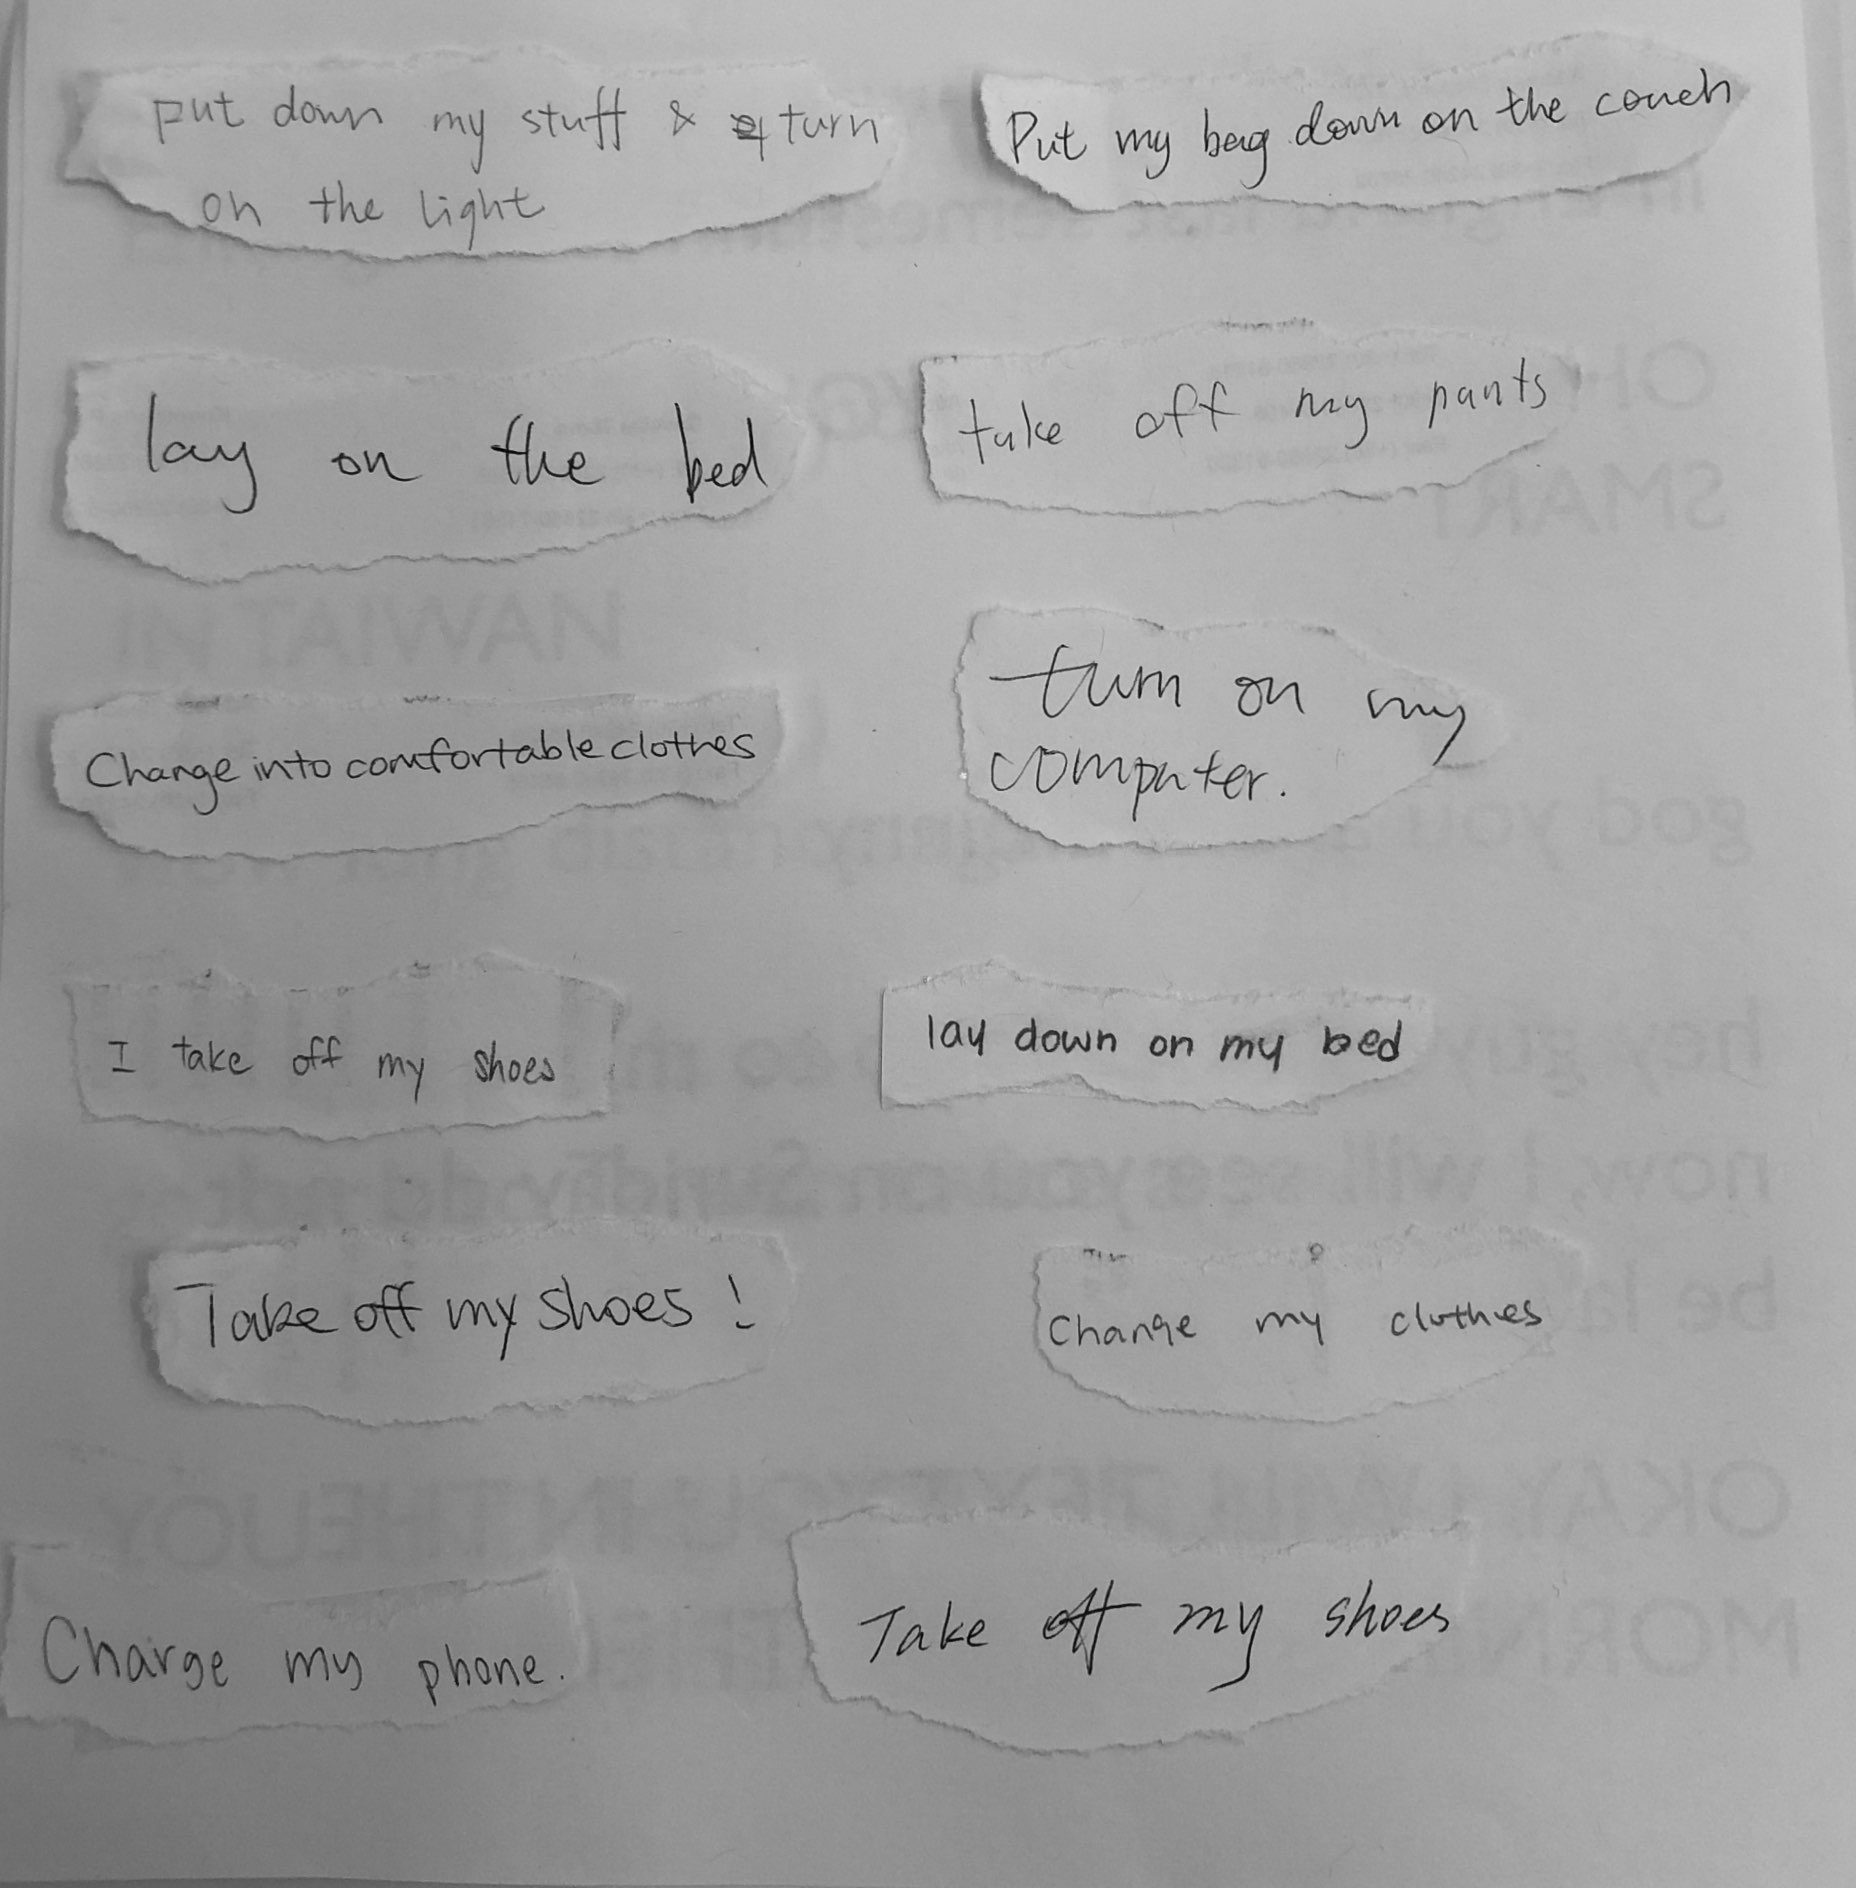 Put down my stuff & turn
on the light
Put my bag down on the couch
lay on the bed
take off my pants
Change into comfortable clothes
turn on my
computer.
I take off my shoes
lay down on my bed
Take off my shoes!
change my clothes
Charge my phone.
Take off my shoes